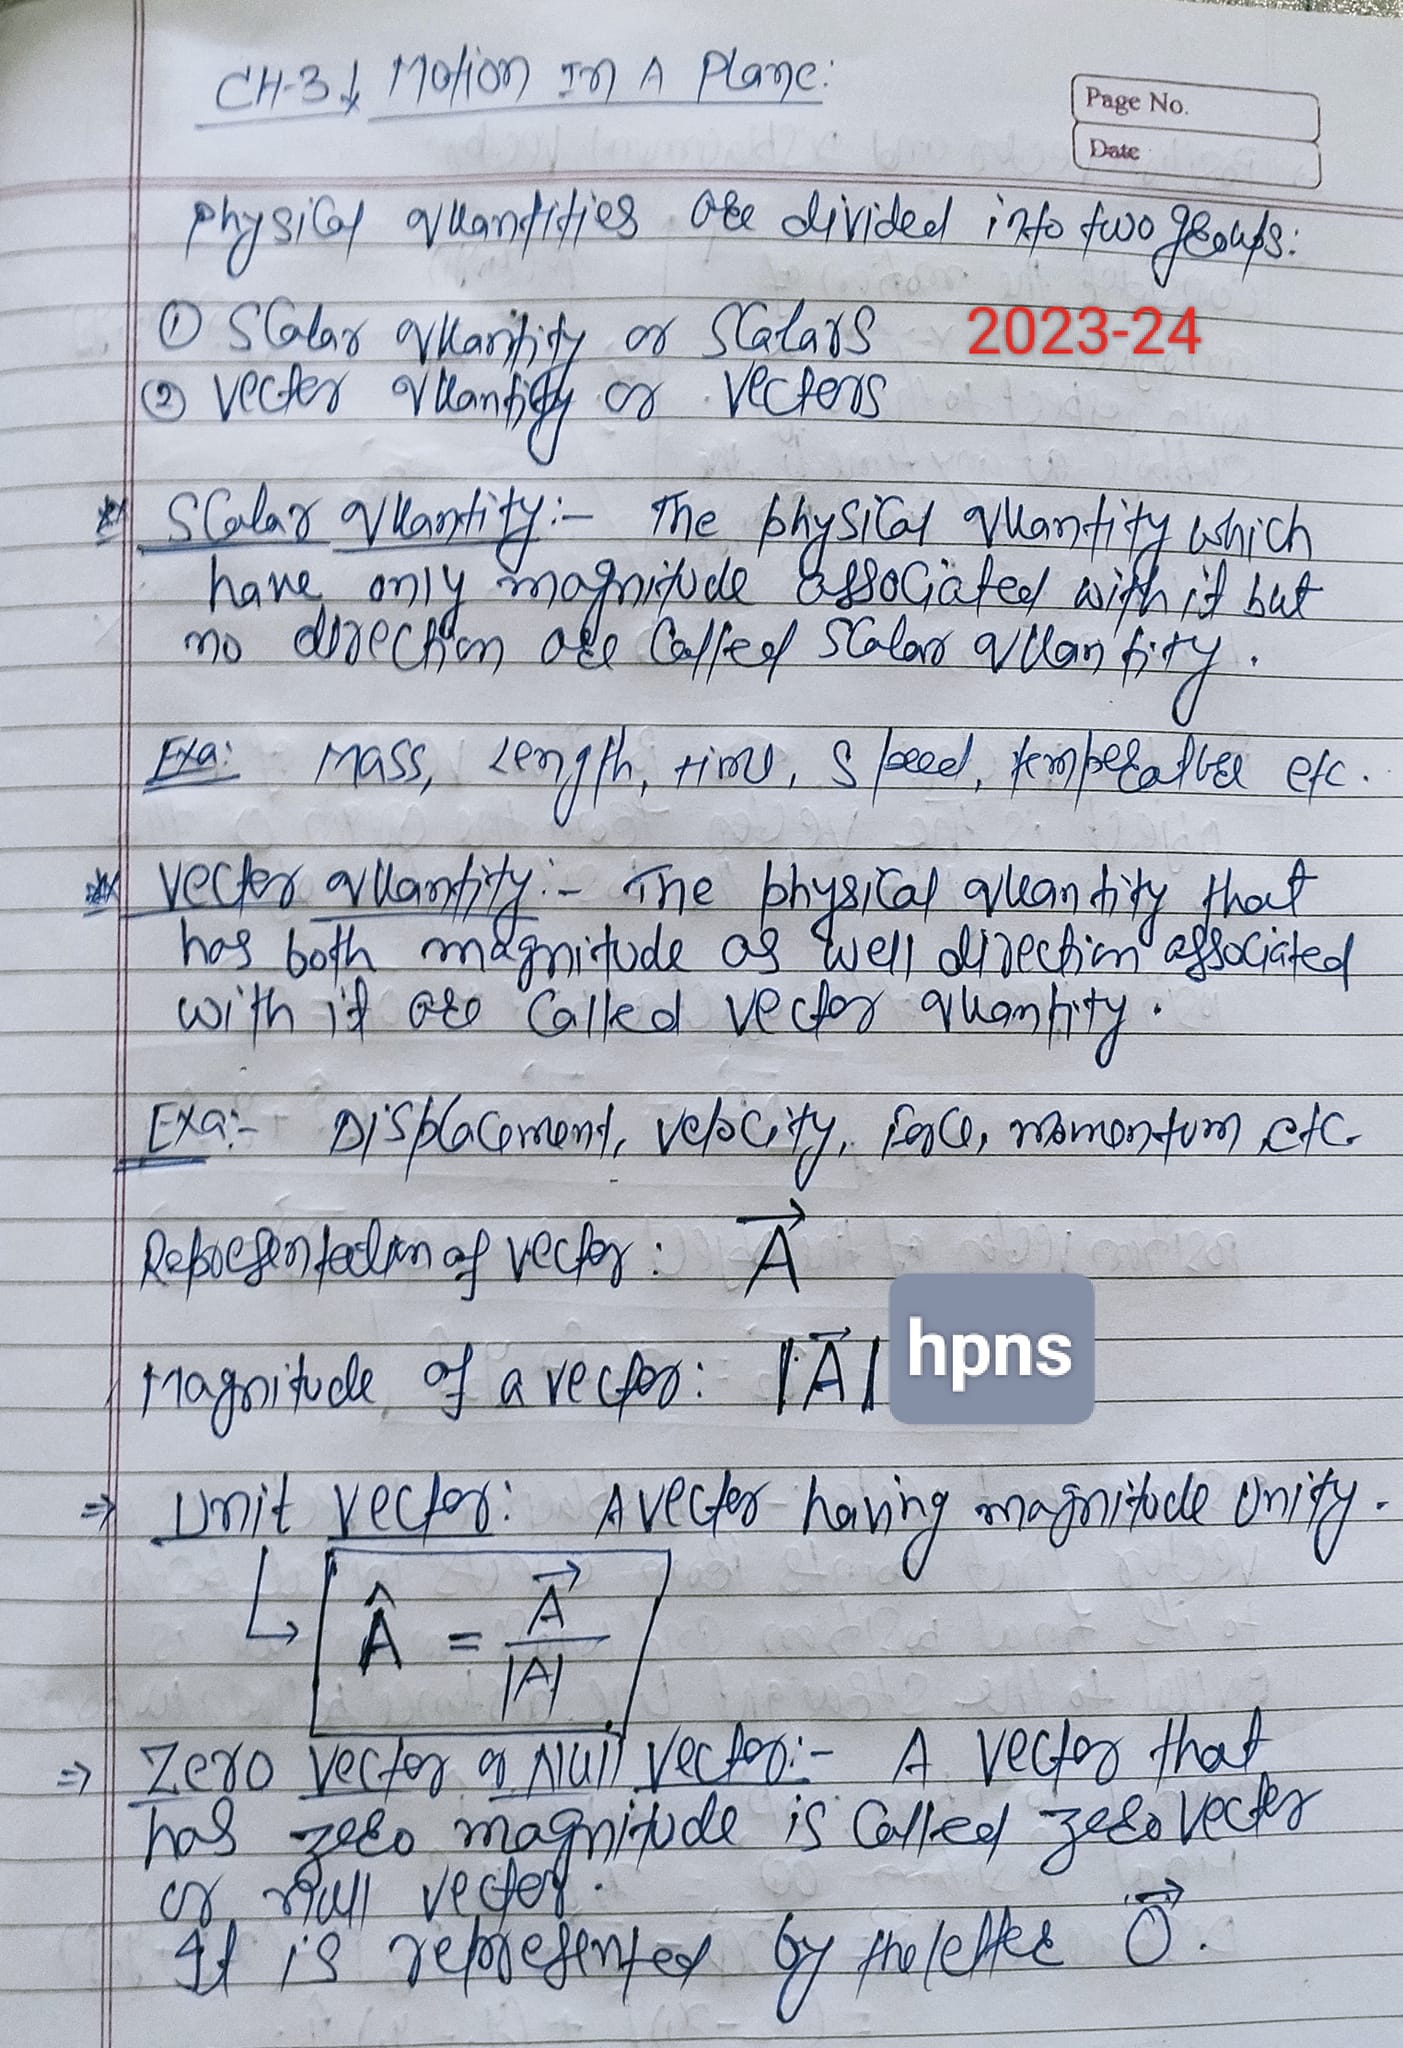 CH-3↓ Motion In A Plane:
Page No.
Date
Physical quantities are divided into two groups:
① Scalar quantity or Scalars 2023-24
② Vector quantity or Vectors
Scalar quantity:- The physical quantity which
have only magnitude associated with it but
no direction are called scalar quantity.
Exa: Mass, Length, time, Speed, temperature etc.
Vector quantity:- The physical quantity that
has both magnitude as well direction associated
with it are called vector quantity.
Exa:- Displacement, velocity, force, momentum etc.
Representation of vector: A⃗
Magnitude of a vector: |A⃗| hpns
⇒ Unit Vector: A vector having magnitude unity.
↳ Â = A⃗ / |A|
⇒ Zero Vector or Null Vector:- A vector that
has zero magnitude is called zero vector
or null vector.
It is represented by the letter O⃗.